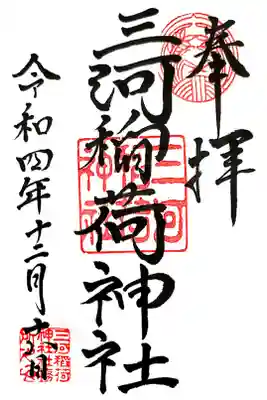 奉拝
三河稲荷神社
令和四年十二月六日
三河
稲荷
神社
三河稲荷
神社社務